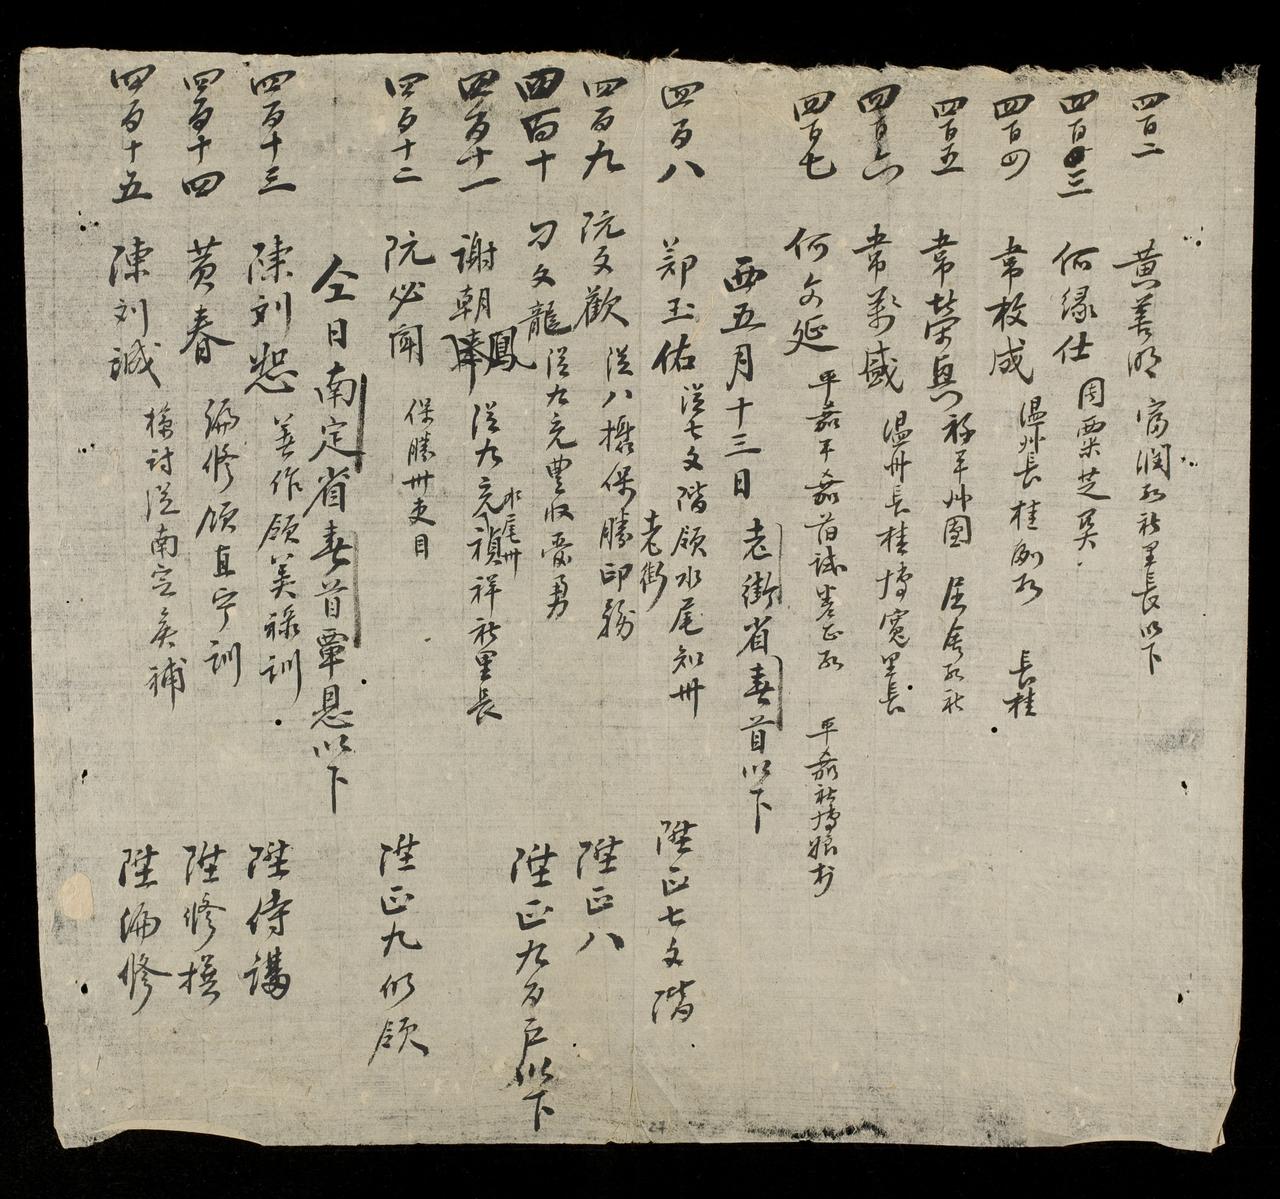 四百二 黃善明 富潤社里長以下
四百三 何緣仕 周粟芝異
四百四 韋枚成 溫州長桂 長桂
四百五 韋榮興 禄平州圖
四百六 韋盛 溫州長桂博寬里長
四百七 何文延 平嘉 平嘉首試 平嘉社博娘村
酉五月十三日 老街省春首以下
四百八 鄭玉佑 從七文階領水尾知州 老街 陞正七文階
四百九 阮文歡 從八攝保勝印務 陞正八
四百十 刁文龍 從九充豐收憂勇 陞正九百戶以下
四百十一 謝朝鳳 從九充水尾州禎祥社里長
四百十二 阮必聞 保勝州吏目 陞正九仍領
仝日南定省春首覃恩以下
四百十三 陳刘恕 著作領美祿訓 陞侍講
四百十四 黃春 編修領直宁訓 陞修撰
四百十五 陳刘誠 檢討從南定矦補 陞編修